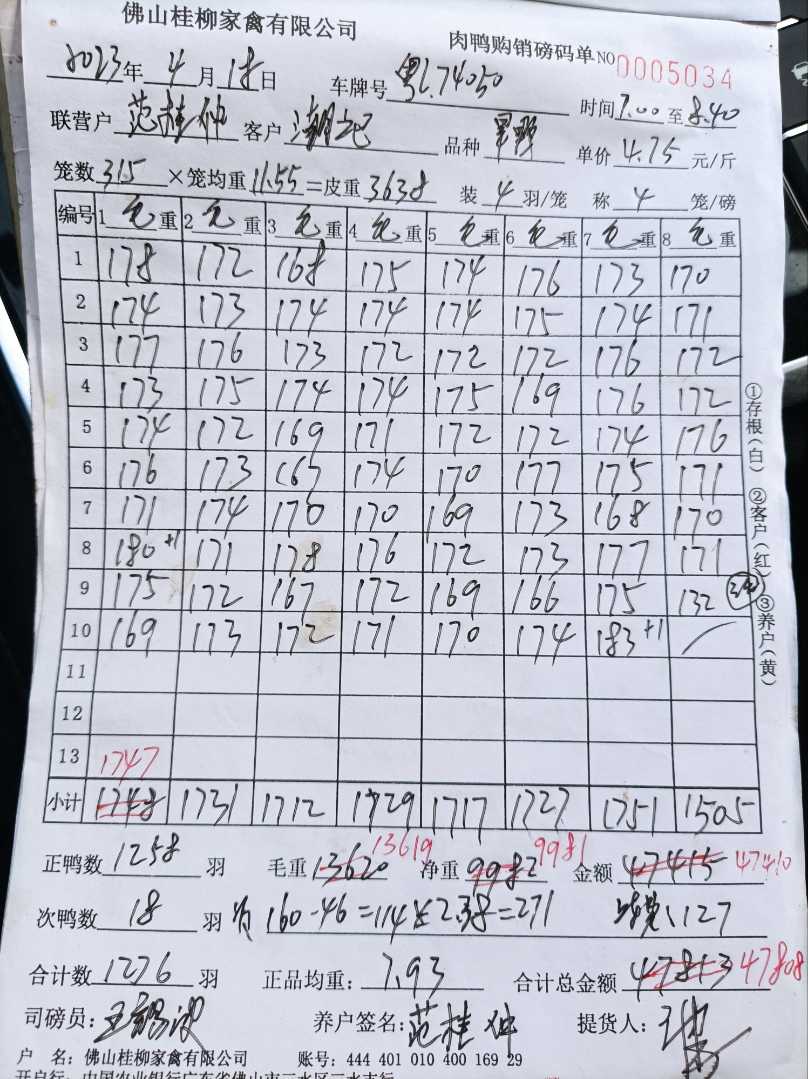 佛山桂柳家禽有限公司
肉鸭购销磅码单 NO 0005034
2023年 4 月 18 日 车牌号 粤L74050
时间 7.00 至 8.40
联营户 范桂仲 客户 品种 单价 4.75 元/斤
笼数 315 ×笼均重 11.55 =皮重 3638 装 4 羽/笼 称 4 笼/磅
编号 1 毛 重 2 毛 重 3 毛 重 4 毛 重 5 毛 重 6 毛 重 7 毛 重 8 毛 重
1 178 172 168 175 174 176 173 170
2 174 173 174 174 174 175 174 171
3 177 176 173 172 172 172 176 172
4 173 175 174 174 175 169 176 172
5 174 172 169 171 172 172 174 176
6 176 173 167 174 170 177 175 171
7 171 174 170 170 169 173 168 170
8 180+1 171 178 176 172 173 177 171
9 175 172 167 172 169 166 175 132
10 169 173 172 171 170 174 183+1 /
11
12
13 1747
小计 1748 1731 1712 1729 1717 1727 1751 1505
①存根(白) ②客户(红) ③养户(黄)
正鸭数 1258 羽 毛重 13620 13619 净重 9982 9981 金额 47415 47410
次鸭数 18 羽 160-46=114×2.38=271 127
合计数 1276 羽 正品均重: 7.93 合计总金额 47813 47808
司磅员: 养户签名: 范桂仲 提货人:
户 名: 佛山桂柳家禽有限公司 账号: 444 401 010 400 169 29
开户行: 中国农业银行广东省佛山市三水区三水支行